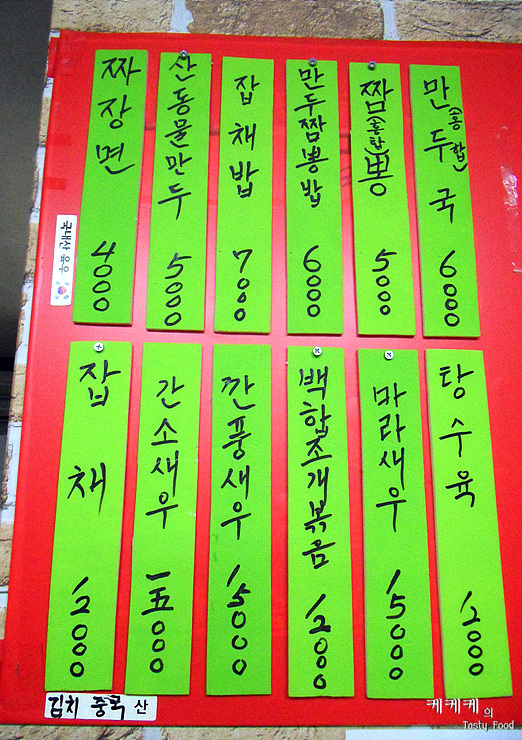 짜장면 4000
산동물만두 5000
잡채밥 7000
만두짬뽕밥 6000
짬뽕(홍합) 5000
만두국(홍합) 6000
국내산 육우
잡채 12000
간소새우 一五000
깐풍새우 15000
백합조개볶음 12000
마라새우 15000
탕수육 12000
김치 중국 산
케케케의
Tasty Food